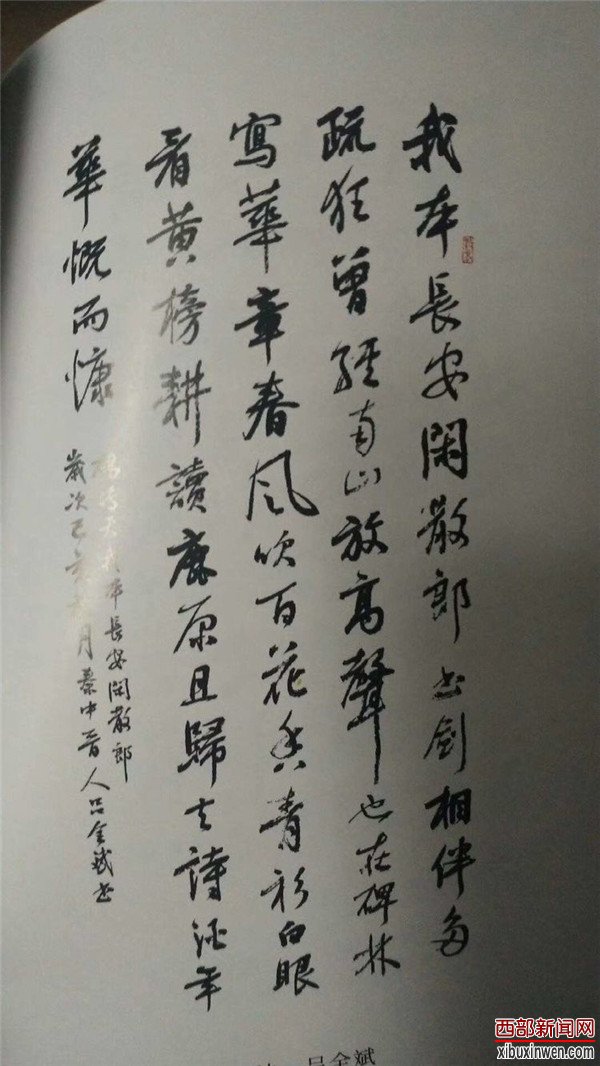 我本長安閑散郎书剑相伴多
疏狂曾經南山放高聲也在碑林
寫華章春风吹百花香青衫白眼
看黄榜耕讀鹿原且歸去詩酒年
華慨而慷
天我本長安閑散郎
歲次己亥月秦中晋人吕全斌书
吕全斌
西部新闻网
xibuxinwen.com